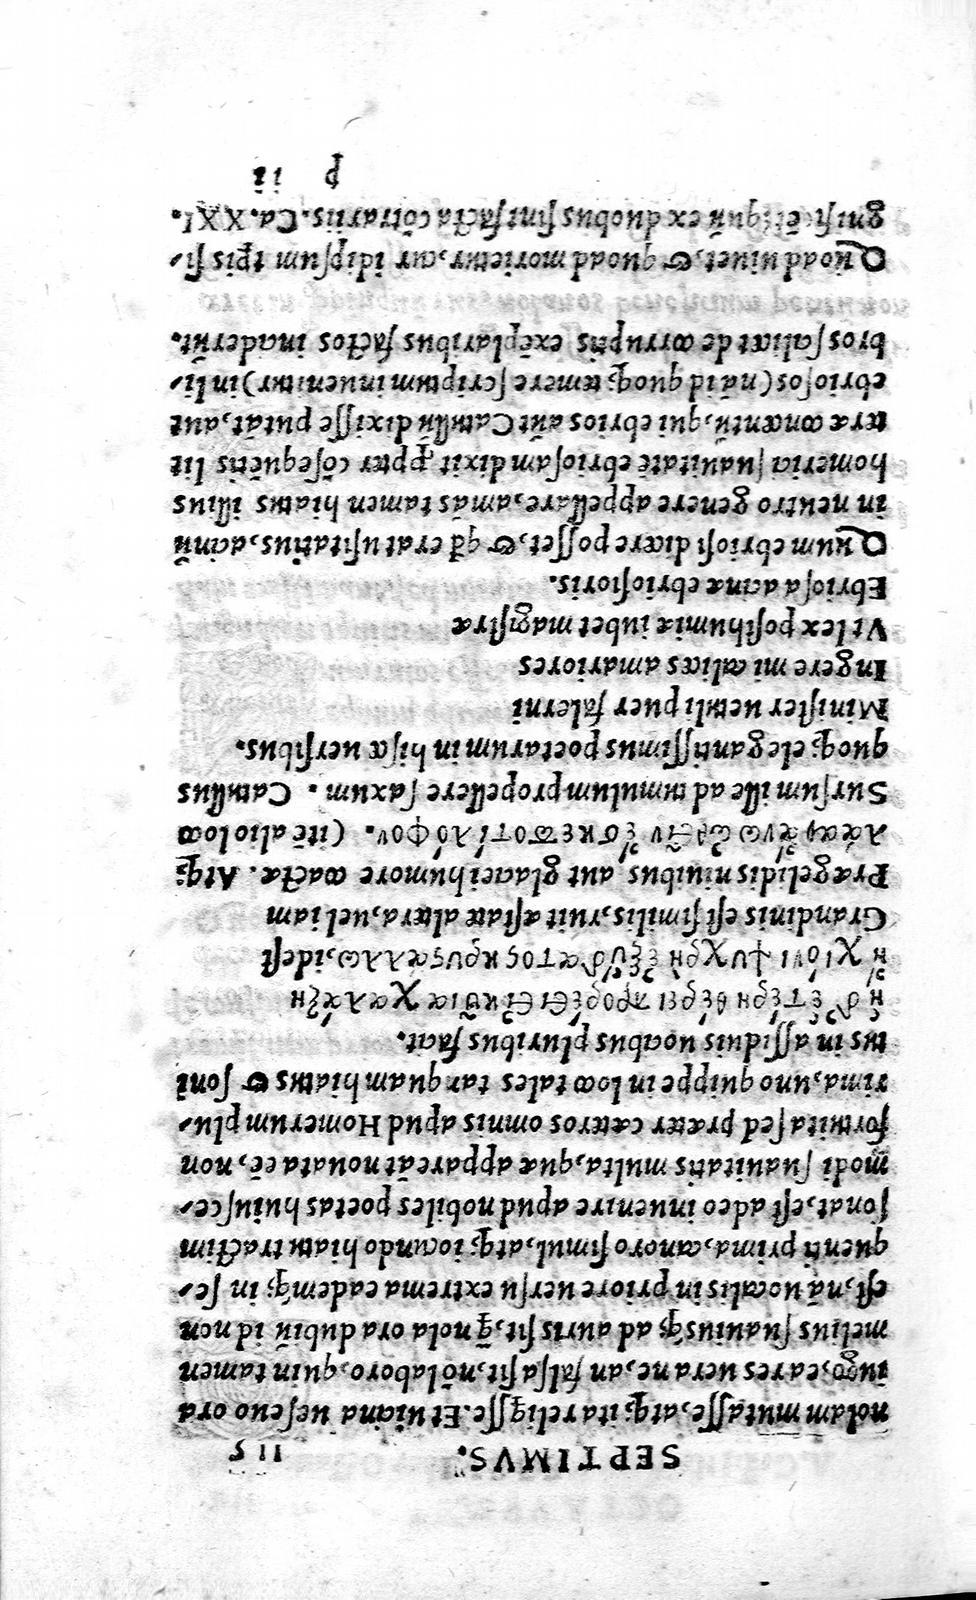 SEPTIMVS. 115
nolam mutasse, atq; ita reliqsse. Et uicina uesevo ora
iugo, ea res uera ne, an falsa sit, nō laboro, quin tamen
melius suauiusq́; ad auris sit, q̄ nola ora dubiū id non
est, nā uocalis in priore uersu extrema eademq́; in se-
quenti prima, canoro simul, atq; iocundo hiatu tractim
sonat, est adeo inuenire apud nobiles poetas huiusce-
modi suauitatis multa, quæ appareāt nouata eē, non
fortuita sed præter cæteros omnis apud Homerum plu-
rima, uno quippe in loco tales tar quam hiatus & soni
tus in assiduis uocibus pluribus facit.
ἡ δ' ἑτέρη θέρεϊ προρέει ἐικυῖα χαλάζῃ
ἢ χιόνι ψυχρῇ ἐξ ὕδατος κρυςάλλω, idest
Grandinis est similis, ruit æstate altera, uel iam
Prægelidis niuibus aut glaciei humore coacta. Atq;
λᾶαν ἄνω ὤθεσκε ποτὶ λόφον. (itē alio loco
Sursum ille ad tumulum propellere saxum. Catullus
quoq; elegantissimus poetarum in hisce uersibus.
Minister uetuli puer falerni
Ingere mi calices amariores
Vt lex posthumiæ iubet magistræ
Ebriosa acina ebriosioris.
Quum ebriosi dicere posset, & qđ erat usitatius, acinū
in neutro genere appellare, amās tamen hiatus illius
homerici suauitatē ebriosam dixit ꝓpter cōsequētis lit
teræ concentū, qui ebrios aūt Catullū dixisse putāt, aut
ebriosos (nā id quoq; temere scriptum inuenitur) in li-
bros scilicet de corruptis exēplaribus factos inciderūt.
Quoad uiuet, & quoad morietur, cur id ipsum tp̄is si-
gnificēt, quū ex duobus sint facta cōtrariis. Ca. XXI.
p ii